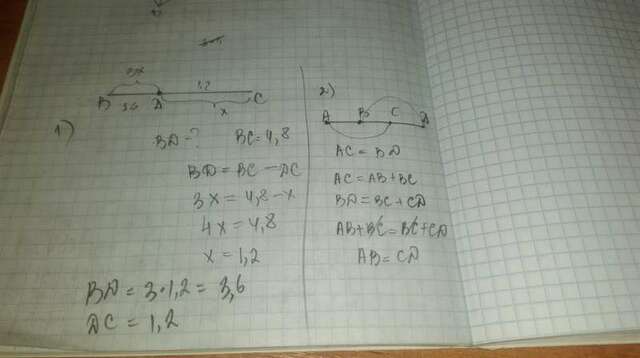 3x 1,2
B 3,6 D C
x
1)
BD - ? BC = 4,8
BD = BC - DC
3x = 4,8 - x
4x = 4,8
x = 1,2
BD = 3 · 1,2 = 3,6
DC = 1,2
2)
A B C D
AC = BD
AC = AB + BC
BD = BC + CD
AB + BC = BC + CD
AB = CD